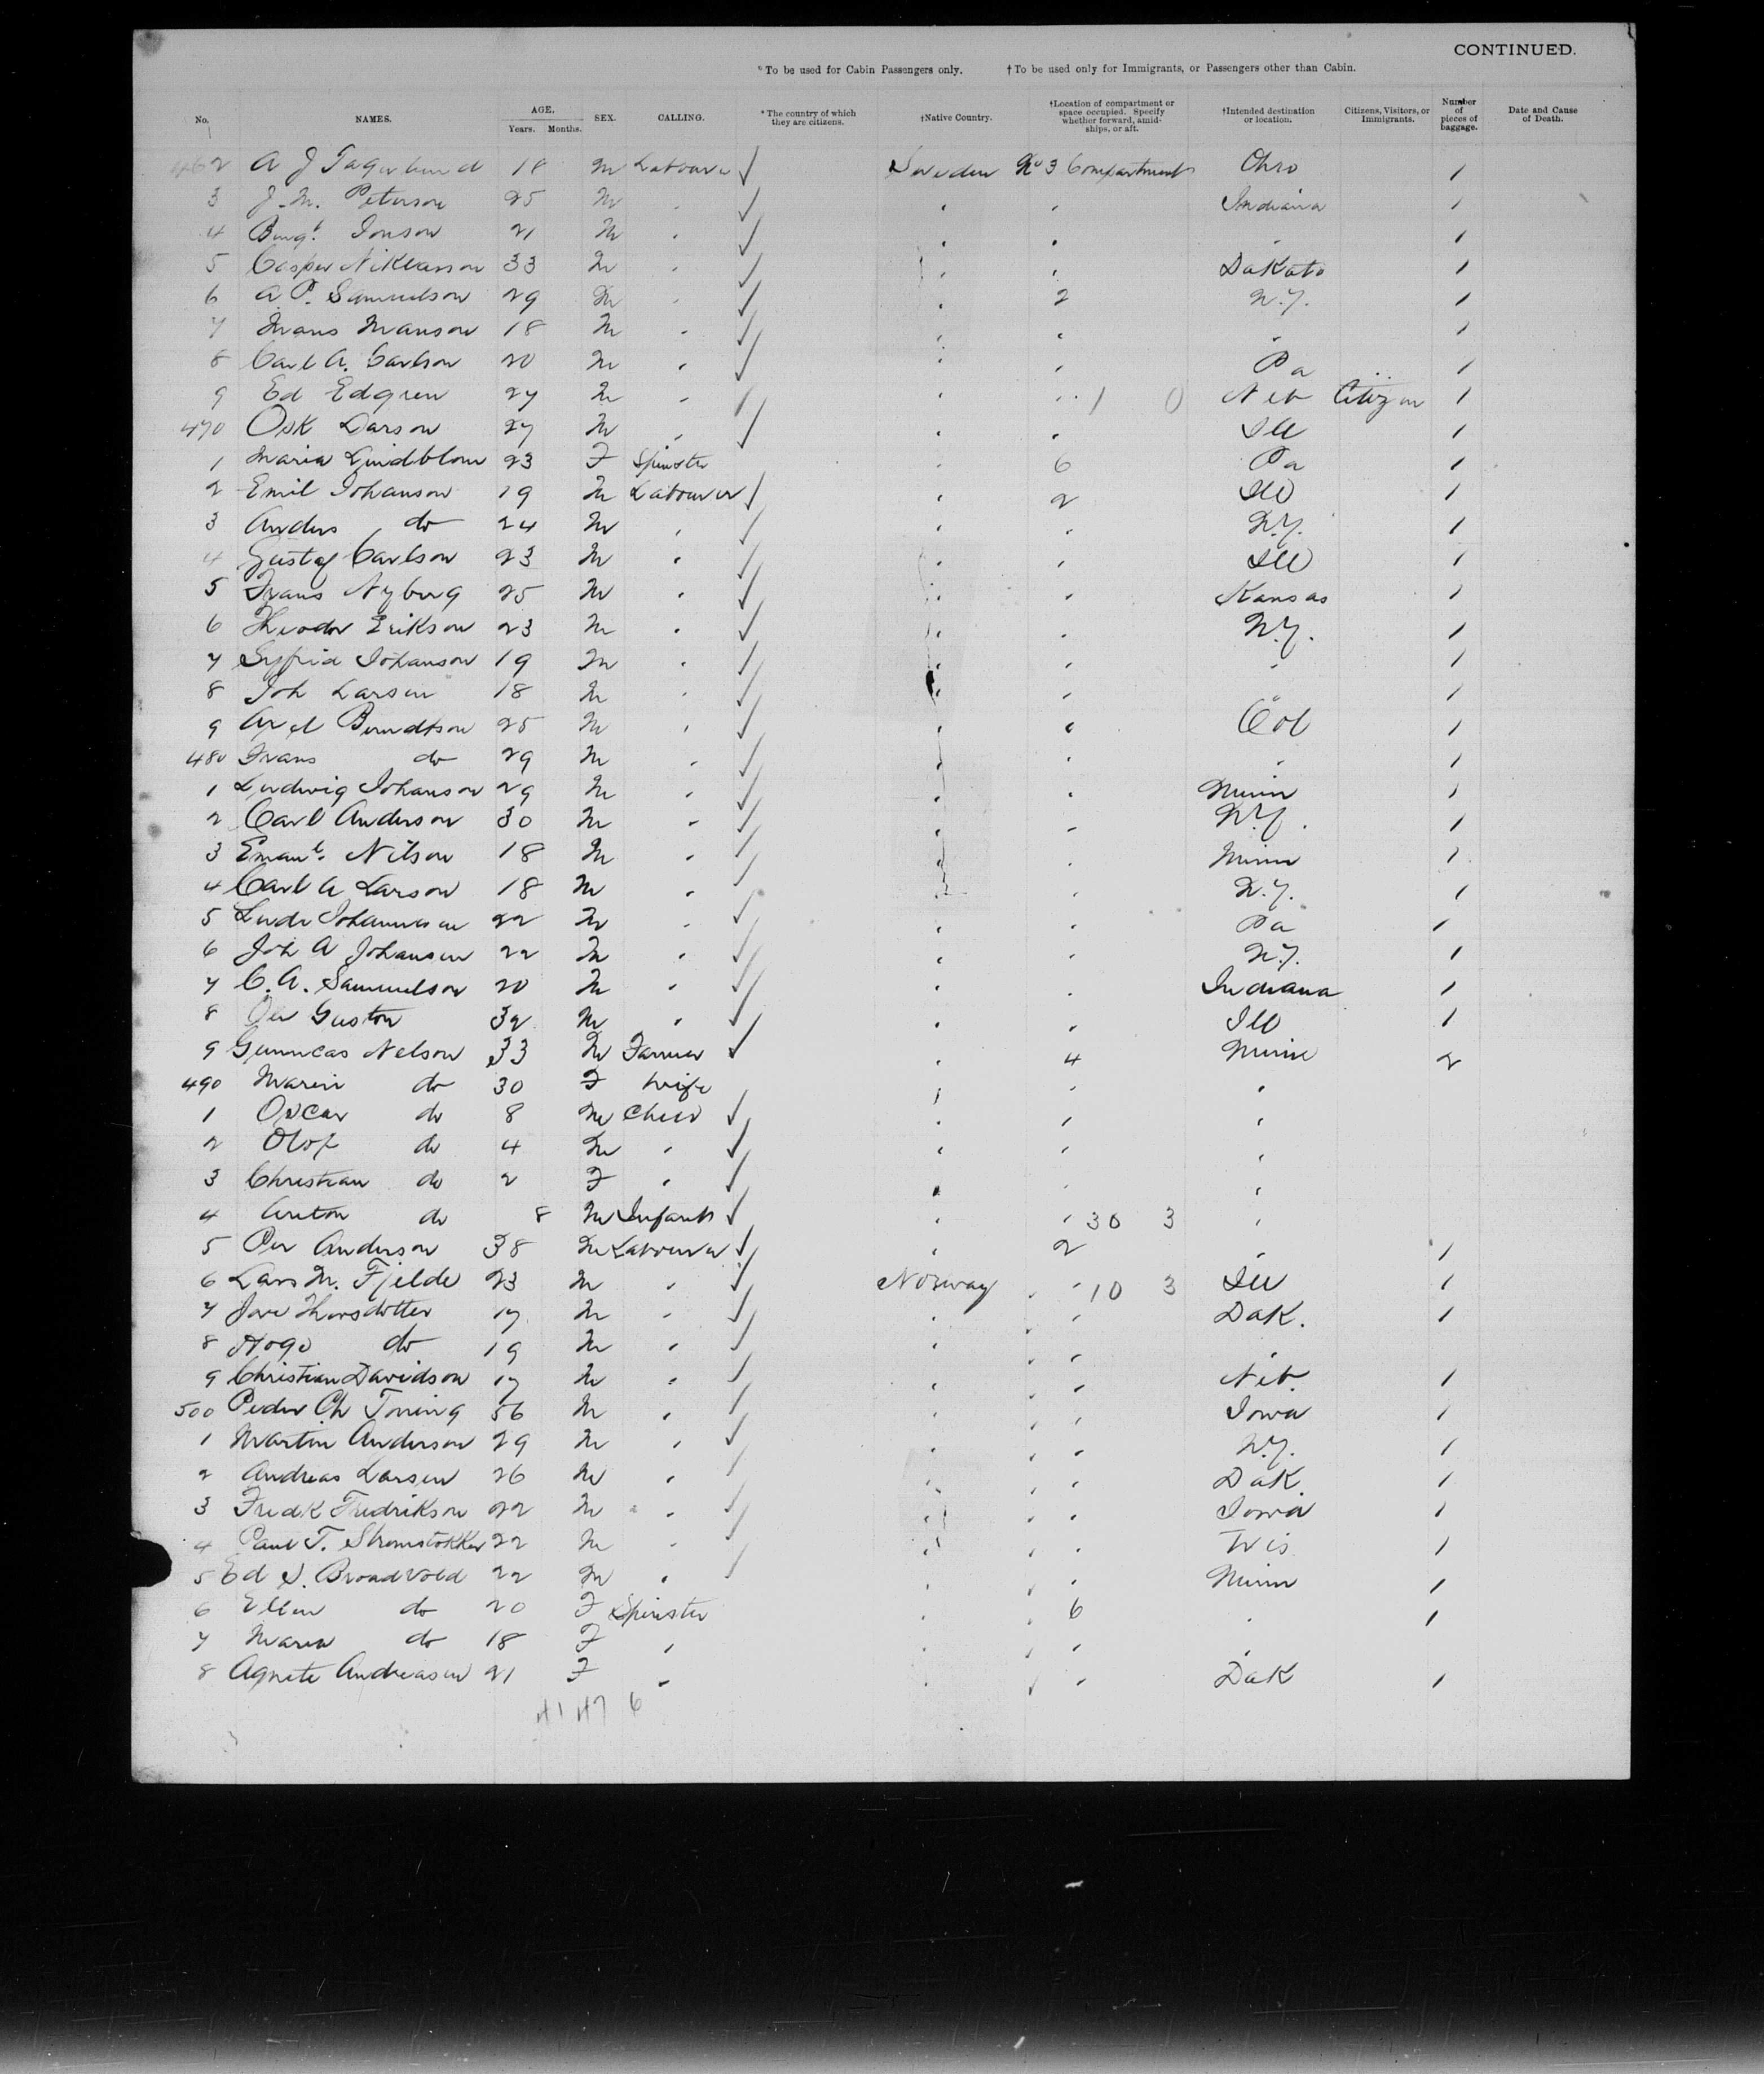 CONTINUED.
*To be used for Cabin Passengers only. †To be used only for Immigrants, or Passengers other than Cabin.
No. NAMES. AGE. Years. Months. SEX. CALLING. *The country of which they are citizens. †Native Country. †Location of compartment or space occupied. Specify whether forward, amidships, or aft. †Intended destination or location. Citizens, Visitors, or Immigrants. Number of pieces of baggage. Date and Cause of Death.
462 A J 18 M Labourer ✓ Sweden No 3 Compartment Ohio 1
3 J. M. Peterson 25 M " ✓ " " Indiana 1
4 Bengt. Jonson 21 M " ✓ " " " 1
5 Casper Niklasson 33 M " ✓ " " Dakato 1
6 A. P. Samuelson 29 M " ✓ " 2 N.Y. 1
7 Mans Manson 18 M " ✓ " " " 1
8 Carl A. Carlson 20 M " ✓ " " Pa 1
9 Ed Edgren 27 M " ✓ " " 1 0 Neb Citizen 1
470 Osk Larson 27 M " ✓ " " Ill 1
1 Maria Lindblom 23 F Spinster " 6 Pa 1
2 Emil Johanson 19 M Labourer ✓ " 2 Ill 1
3 Anders do 24 M " ✓ " " N.Y. 1
4 Gustaf Carlson 23 M " ✓ " " Ill 1
5 Frans Nyberg 25 M " ✓ " " Kansas 1
6 Theodor Erikson 23 M " ✓ " " N.Y. 1
7 Johanson 19 M " ✓ " " " 1
8 Joh Larsen 18 M " ✓ " " 1
9 Axel Berndtson 25 M " ✓ " " Col 1
480 Frans do 29 M " ✓ " " " 1
1 Ludwig Johanson 29 M " ✓ " " Minn 1
2 Carl Anderson 30 M " ✓ " " N.Y. 1
3 Emanl. Nilson 18 M " ✓ " " Minn 1
4 Carl A Larson 18 M " ✓ " " N.Y. 1
5 22 M " ✓ " " Pa 1
6 Joh A Johansen 22 M " ✓ " " N.Y. 1
7 C. A. Samuelson 20 M " ✓ " " Indiana 1
8 32 M " ✓ " " Ill 1
9 Nelson 33 M Farmer ✓ " 4 Minn 2
490 do 30 F Wife " " "
1 Oscar do 8 M Child ✓ " " "
2 Olof do 4 M " ✓ " " "
3 Christian do 2 F " ✓ " " "
4 Anton do 8 M Infant ✓ " " 30 3 "
5 Per Anderson 38 M Labourer ✓ " 2 " 1
6 Lars M. Fjelde 23 M " ✓ Norway " " 10 3 Ill 1
7 Thorsdotter 17 M " ✓ " " " Dak. 1
8 do 19 M " ✓ " " " "
9 Christian Davidson 17 M " ✓ " " " Neb. 1
500 Peder Ch 56 M " ✓ " " " Iowa 1
1 Martin Anderson 29 M " ✓ " " " N.Y. 1
2 Andreas Larsen 26 M " ✓ " " " Dak 1
3 Fredk Fredrikson 22 M " ✓ " " " Iowa 1
4 Paul T. 22 M " ✓ " " " Wis 1
5 Ed S. Broadvold 22 M " ✓ " " " Minn 1
6 Ellen do 20 F Spinster " " 6 " 1
7 Maria do 18 F " " " " "
8 Agnete Andreasen 21 F " " " " Dak 1
41 47 6